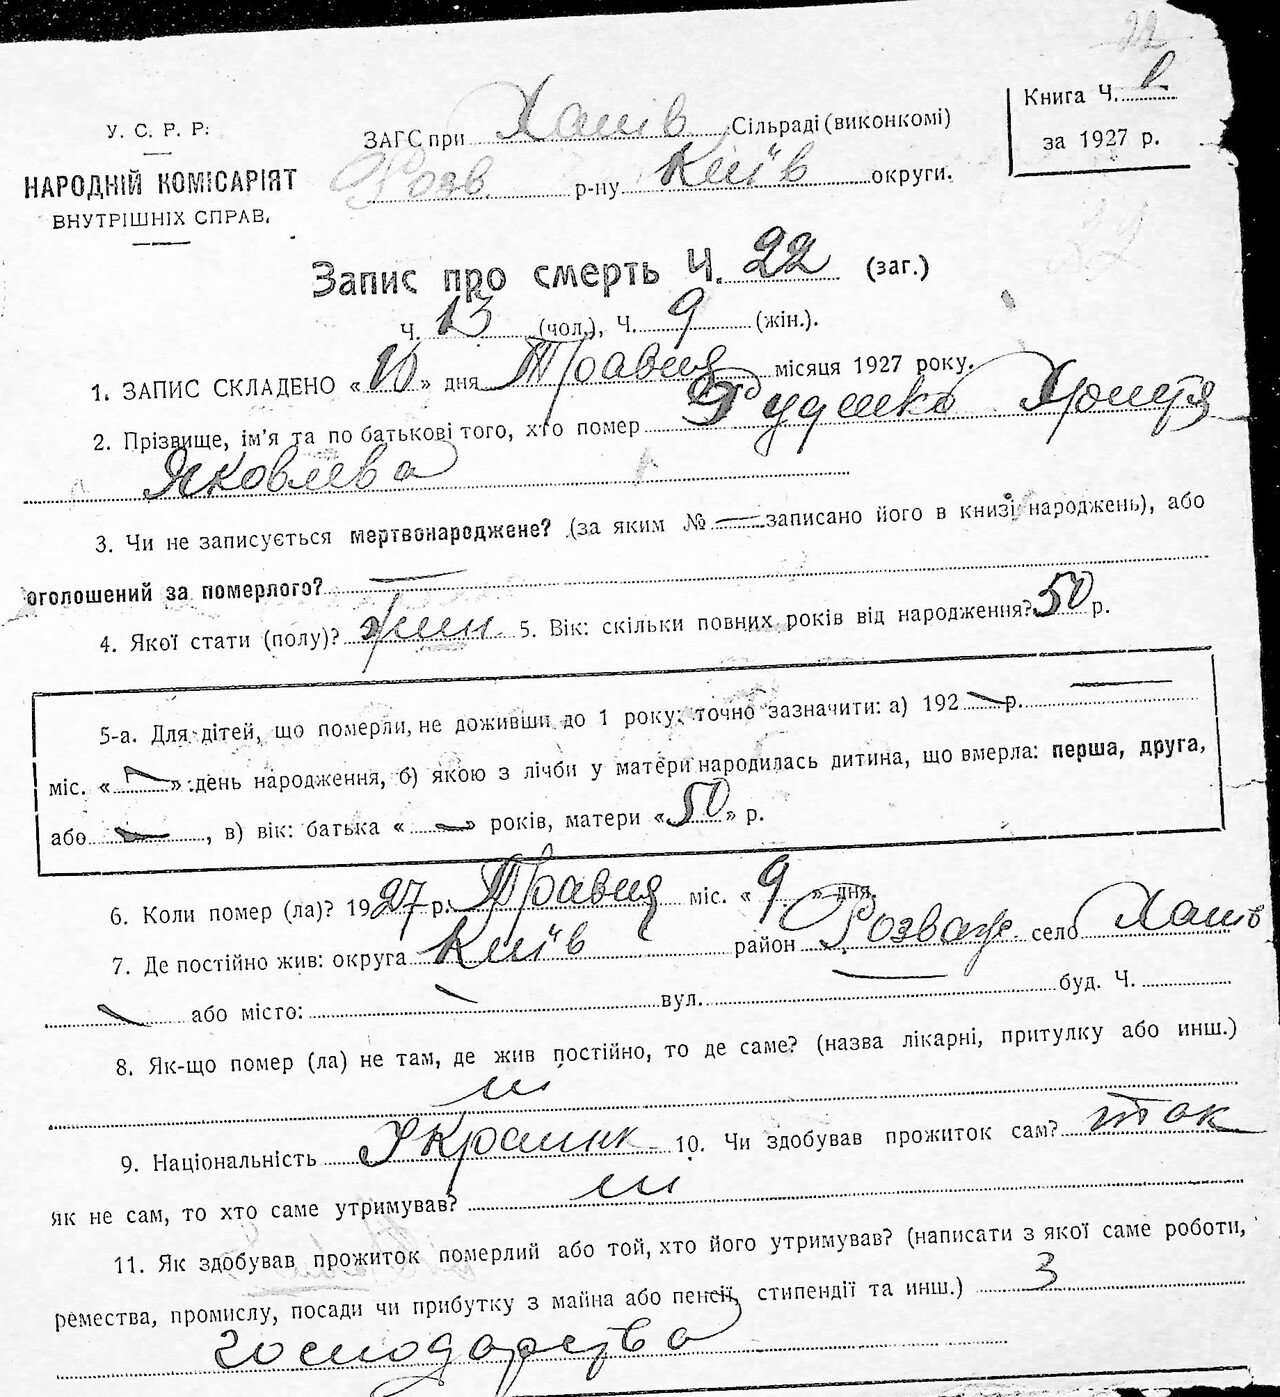 22
Книга Ч.
за 1927 р.
У. С. Р. Р.
НАРОДНІЙ КОМІСАРІЯТ
ВНУТРІШНІХ СПРАВ.
ЗАГС при Хагів Сільраді (виконкомі)
Розв. р-ну Київ округи.
Запис про смерть Ч. 22 (заг.)
Ч. 13 (чол.), Ч. 9 (жін.).
1. ЗАПИС СКЛАДЕНО «10» дня Травня місяця 1927 року.
2. Прізвище, ім'я та по батькові того, хто помер Руденко
Яковлева
3. Чи не записується мертвонароджене? (за яким № — записано його в книзі народжень), або
оголошений за померлого? —
4. Якої стати (полу)? жин. 5. Вік: скільки повних років від народження? 50 р.
5-а. Для дітей, що померли, не доживши до 1 року: точно зазначити: а) 192 — р. —
міс. « — » день народження, б) якою з лічби у матери народилась дитина, що вмерла: перша, друга,
або — , в) вік: батька « — » років, матери «50» р.
6. Коли помер (ла)? 1927 р. Травня міс. «9» дня.
7. Де постійно жив: округа Київ район Розваж. село
— або місто: — вул. — буд. Ч.
8. Як-що помер (ла) не там, де жив постійно, то де саме? (назва лікарні, притулку або инш.)
9. Національність Украинк 10. Чи здобував прожиток сам? так
як не сам, то хто саме утримував?
11. Як здобував прожиток померлий або той, хто його утримував? (написати з якої саме роботи,
ремества, промислу, посади чи прибутку з майна або пенсії, стипендії та инш.) З
господарства